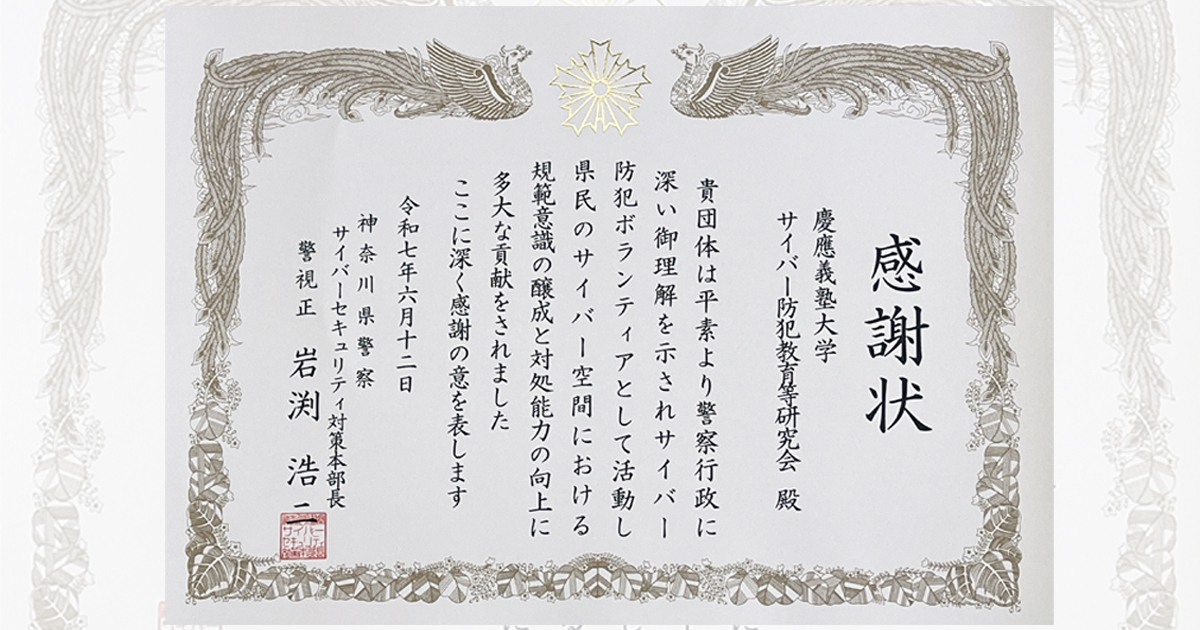 感謝状
慶應義塾大学
サイバー防犯教育等研究会 殿
貴団体は平素より警察行政に
深い御理解を示されサイバー
防犯ボランティアとして活動し
県民のサイバー空間における
規範意識の醸成と対処能力の向上に
多大な貢献をされました
ここに深く感謝の意を表します
令和七年六月十二日
神奈川県警察
サイバーセキュリティ対策本部長
警視正 岩渕 浩二